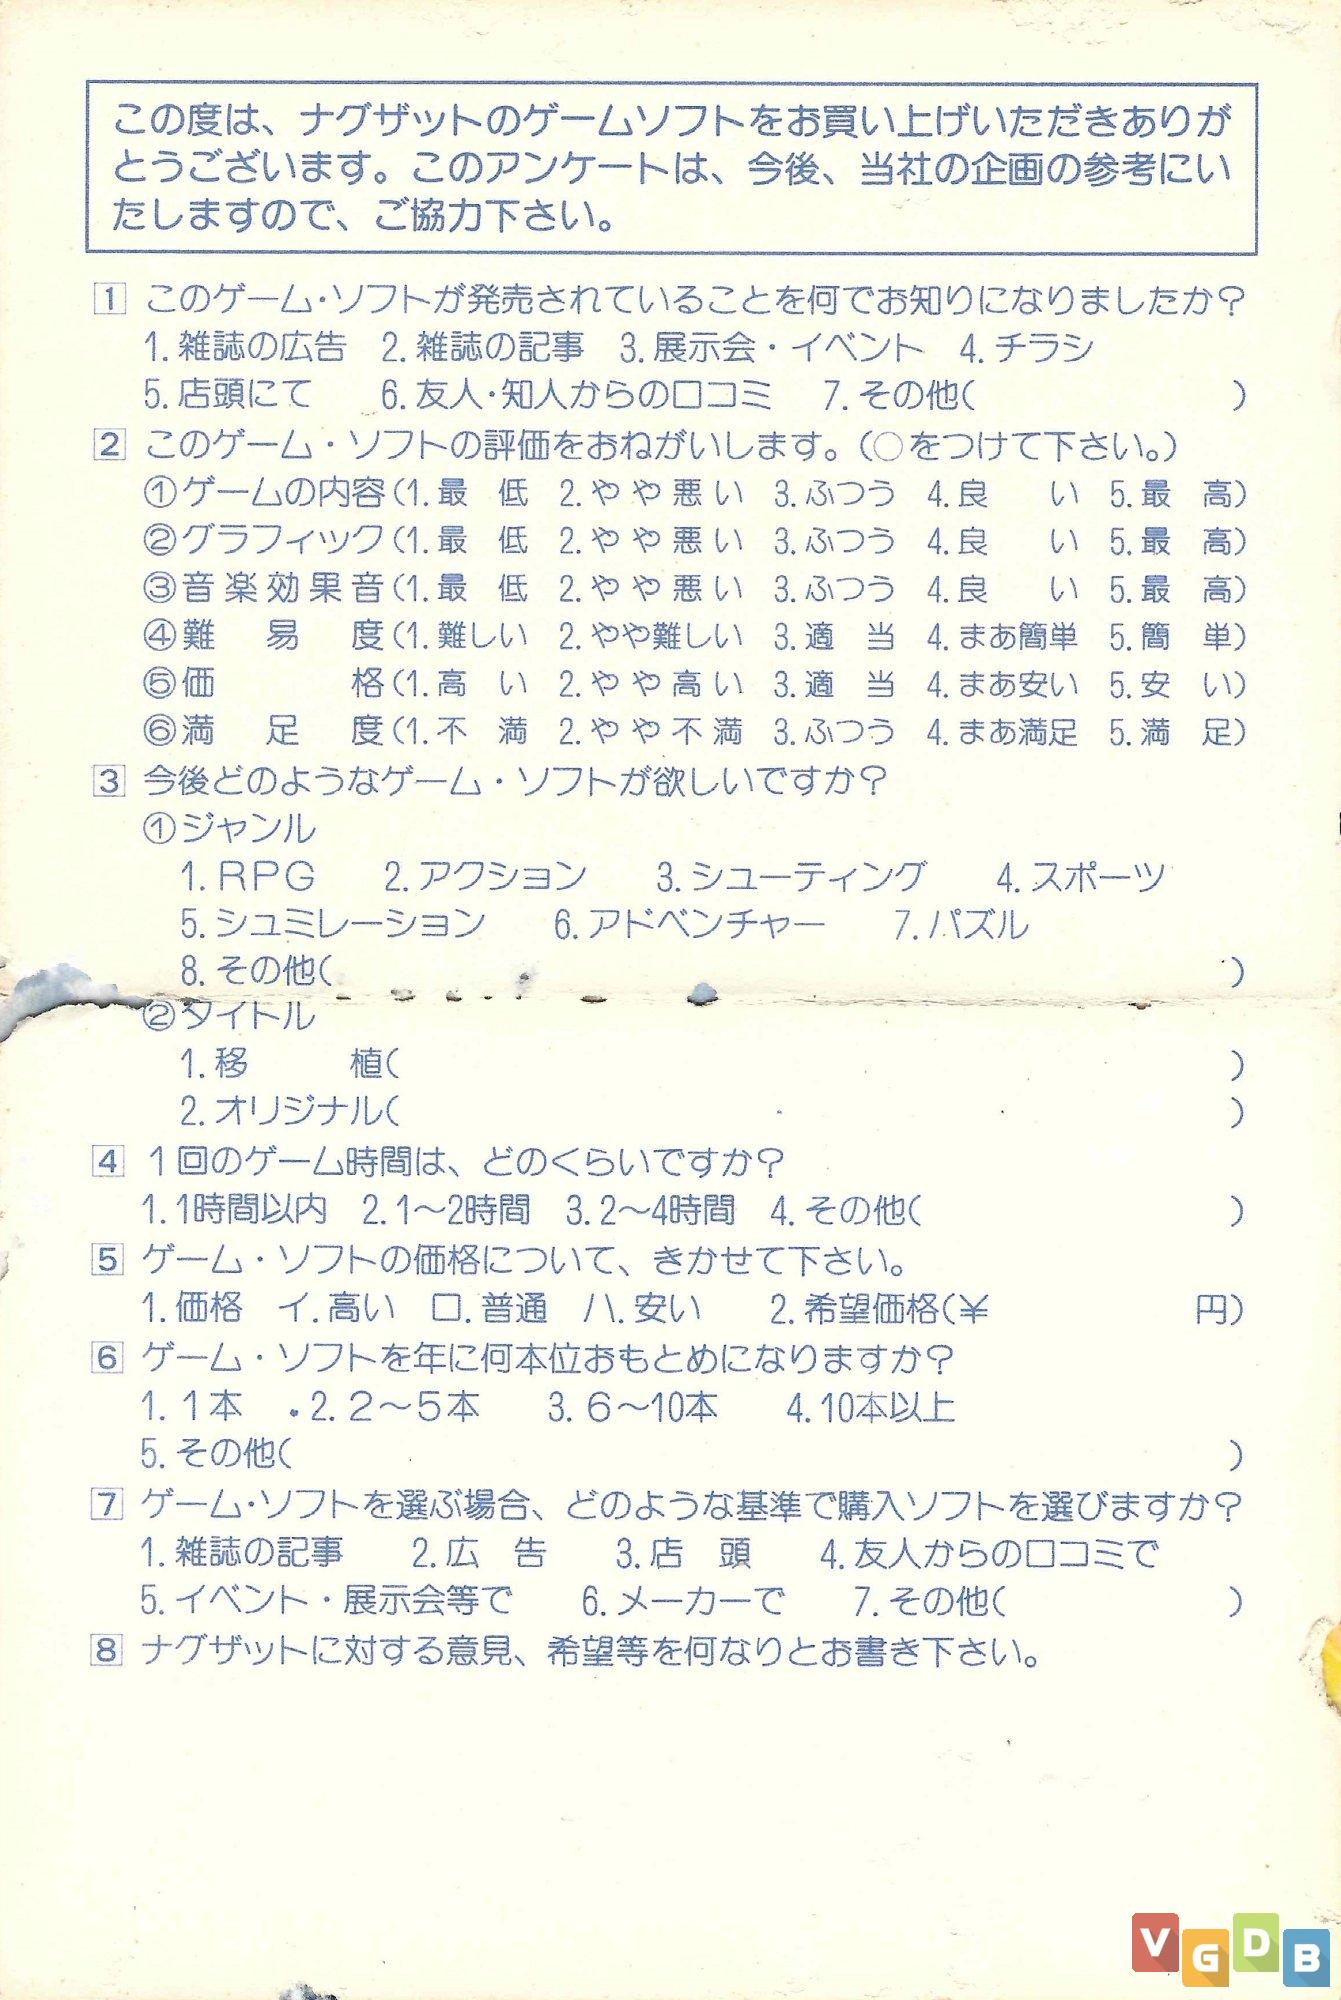 この度は、ナグザットのゲームソフトをお買い上げいただきありが
とうございます。このアンケートは、今後、当社の企画の参考にい
たしますので、ご協力下さい。
1 このゲーム・ソフトが発売されていることを何でお知りになりましたか？
1.雑誌の広告 2.雑誌の記事 3.展示会・イベント 4.チラシ
5.店頭にて 6.友人・知人からの口コミ 7.その他( )
2 このゲーム・ソフトの評価をおねがいします。(○をつけて下さい。)
①ゲームの内容(1.最 低 2.やや悪い 3.ふつう 4.良 い 5.最 高)
②グラフィック(1.最 低 2.やや悪い 3.ふつう 4.良 い 5.最 高)
③音楽効果音(1.最 低 2.やや悪い 3.ふつう 4.良 い 5.最 高)
④難 易 度(1.難しい 2.やや難しい 3.適 当 4.まあ簡単 5.簡 単)
⑤価 格(1.高 い 2.やや高い 3.適 当 4.まあ安い 5.安 い)
⑥満 足 度(1.不 満 2.やや不満 3.ふつう 4.まあ満足 5.満 足)
3 今後どのようなゲーム・ソフトが欲しいですか？
①ジャンル
1.RPG 2.アクション 3.シューティング 4.スポーツ
5.シュミレーション 6.アドベンチャー 7.パズル
8.その他( )
②タイトル
1.移 植( )
2.オリジナル( )
4 1回のゲーム時間は、どのくらいですか？
1.1時間以内 2.1〜2時間 3.2〜4時間 4.その他( )
5 ゲーム・ソフトの価格について、きかせて下さい。
1.価格 イ.高い ロ.普通 ハ.安い 2.希望価格(¥ 円)
6 ゲーム・ソフトを年に何本位おもとめになりますか？
1.1本 2.2〜5本 3.6〜10本 4.10本以上
5.その他( )
7 ゲーム・ソフトを選ぶ場合、どのような基準で購入ソフトを選びますか？
1.雑誌の記事 2.広 告 3.店 頭 4.友人からの口コミで
5.イベント・展示会等で 6.メーカーで 7.その他( )
8 ナグザットに対する意見、希望等を何なりとお書き下さい。
VGDB